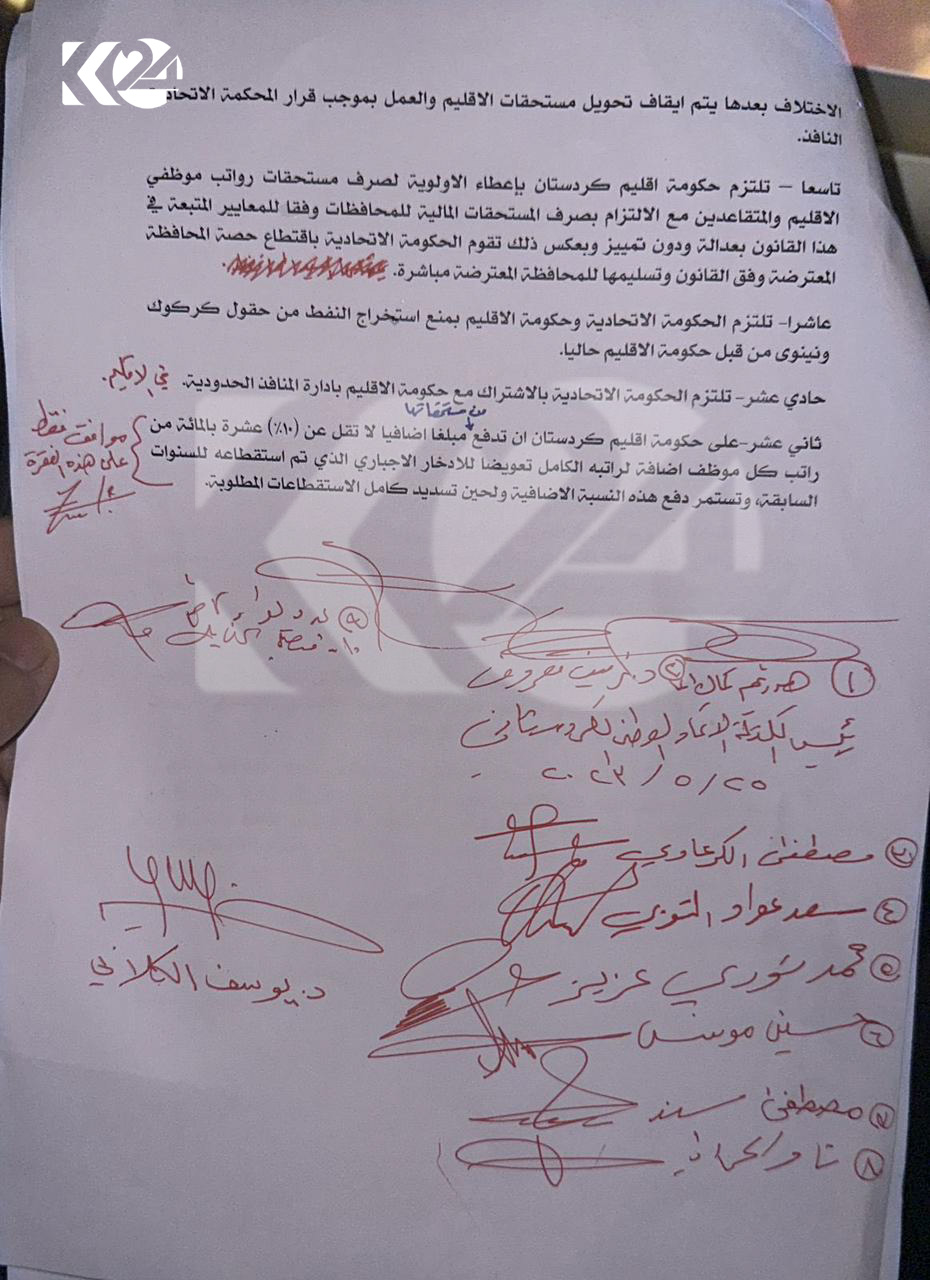 K24
الاختلاف بعدها يتم ايقاف تحويل مستحقات الاقليم والعمل بموجب قرار المحكمة الاتحادية
النافذ.
تاسعا – تلتزم حكومة اقليم كردستان بإعطاء الاولوية لصرف مستحقات رواتب موظفي
الاقليم والمتقاعدين مع الالتزام بصرف المستحقات المالية للمحافظات وفقا للمعايير المتبعة في
هذا القانون بعدالة ودون تمييز وبعكس ذلك تقوم الحكومة الاتحادية باقتطاع حصة المحافظة
المعترضة وفق القانون وتسليمها للمحافظة المعترضة مباشرة.
عاشرا- تلتزم الحكومة الاتحادية وحكومة الاقليم بمنع استخراج النفط من حقول كركوك
ونينوى من قبل حكومة الاقليم حاليا.
حادي عشر- تلتزم الحكومة الاتحادية بالاشتراك مع حكومة الاقليم بادارة المنافذ الحدودية. في الاقليم.
من مستحقاتها
ثاني عشر-على حكومة اقليم كردستان ان تدفع مبلغا اضافيا لا تقل عن (١٠٪) عشرة بالمائة من
راتب كل موظف اضافة لراتبه الكامل تعويضا للادخار الاجباري الذي تم استقطاعه للسنوات
السابقة، وتستمر دفع هذه النسبة الاضافية ولحين تسديد كامل الاستقطاعات المطلوبة.
موافق فقط
على هذه الفقرة
K24
٩
١٠-
١
٢
رئيس كتلة الاتحاد الوطني الكردستاني
٢٠٢٣/٥/٢٥
٣ مصطفى الكرعاوي
٤ سعد عواد التوبي
٥ محمد نوري عزيز
٦ حسين مونس
٧ مصطفى سند
٨
د. يوسف الكلابي